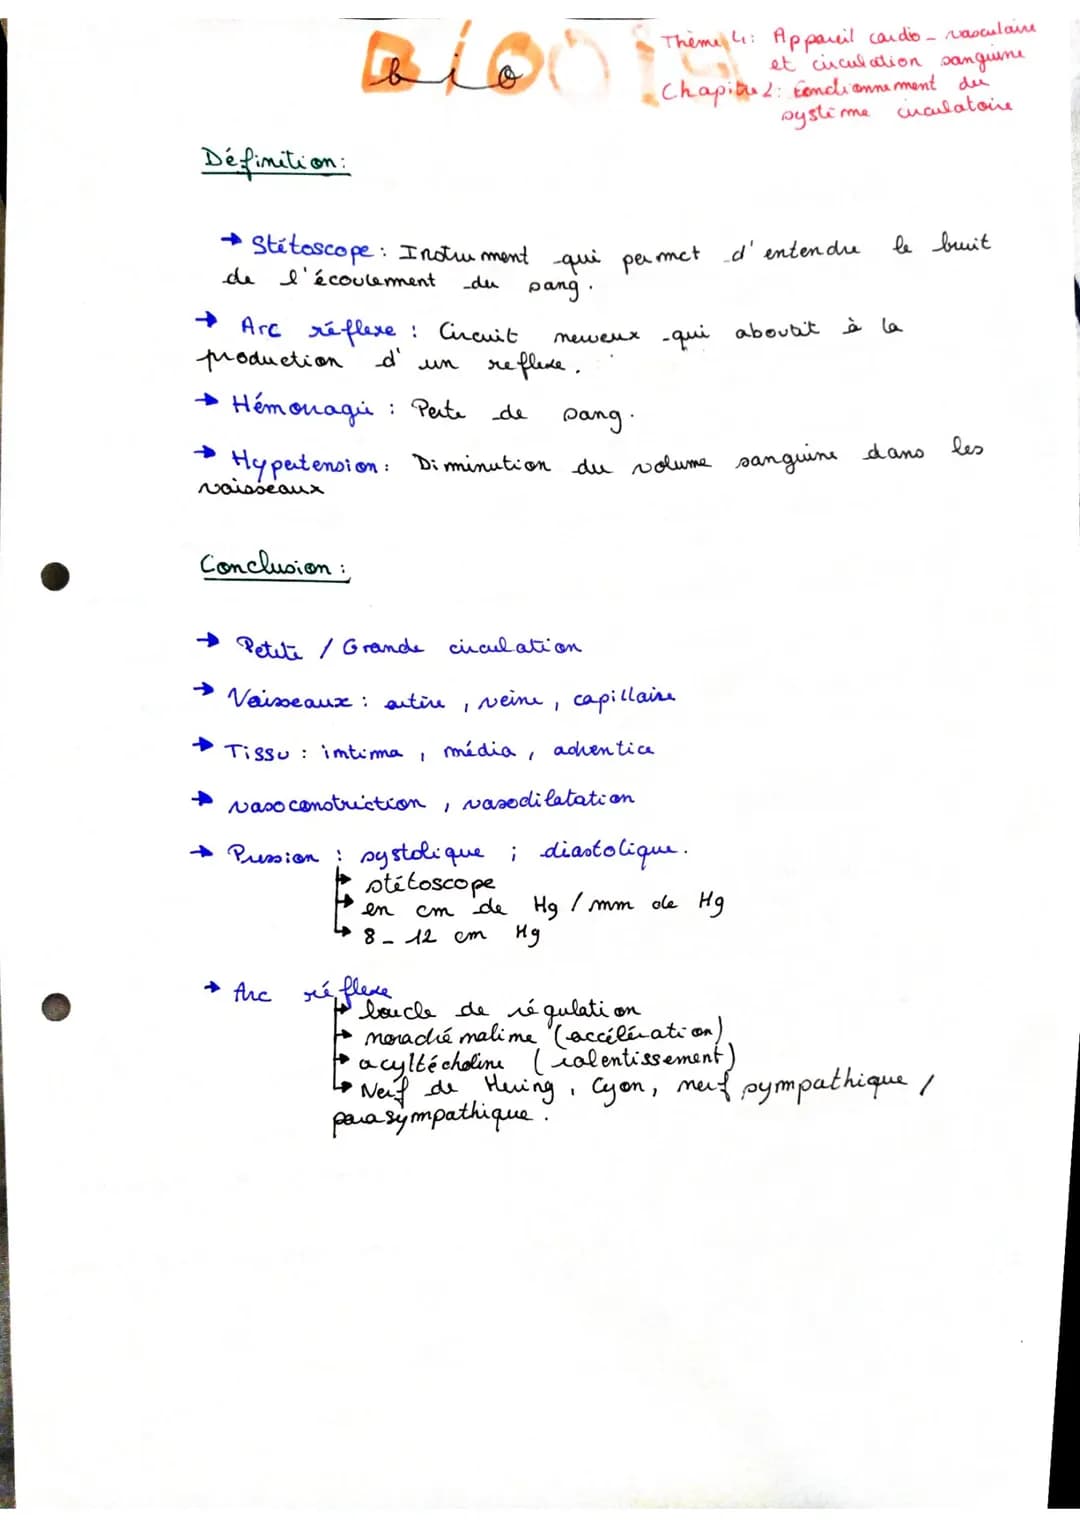 bio
Thème 4: Appareil cardio-vasculaire
et circulation sanguine
Chapitre 2: Fonctionnement du
système circulatoire
Définition:
→ Stétoscope: Instrument qui permet d'entendre le bruit
de l'écoulement du sang.
→ Arc réflexe: Circuit nerveux qui aboutit à la
production d'un reflexe.
→ Hémorragie: Perte de sang.
→ Hypertension: Diminution du volume sanguine dans les
vaisseaux
Conclusion:
→ Petite / Grande circulation
→ Vaisseaux: artère, veine, capillaire
→ Tissu: intima, média, adventice
→ vasoconstriction, vasodilatation
→ Pression: systolique; diastolique.
↳ stétoscope
↳ en cm de Hg / mm de Hg
↳ 8-12 cm Hg
→ Arc réflexe
↳ boucle de régulation
↳ noradrénaline (accélération)
↳ acyltécholine (ralentissement)
↳ Nerf de Hering, Cyon, nerf sympathique /
parasympathique.